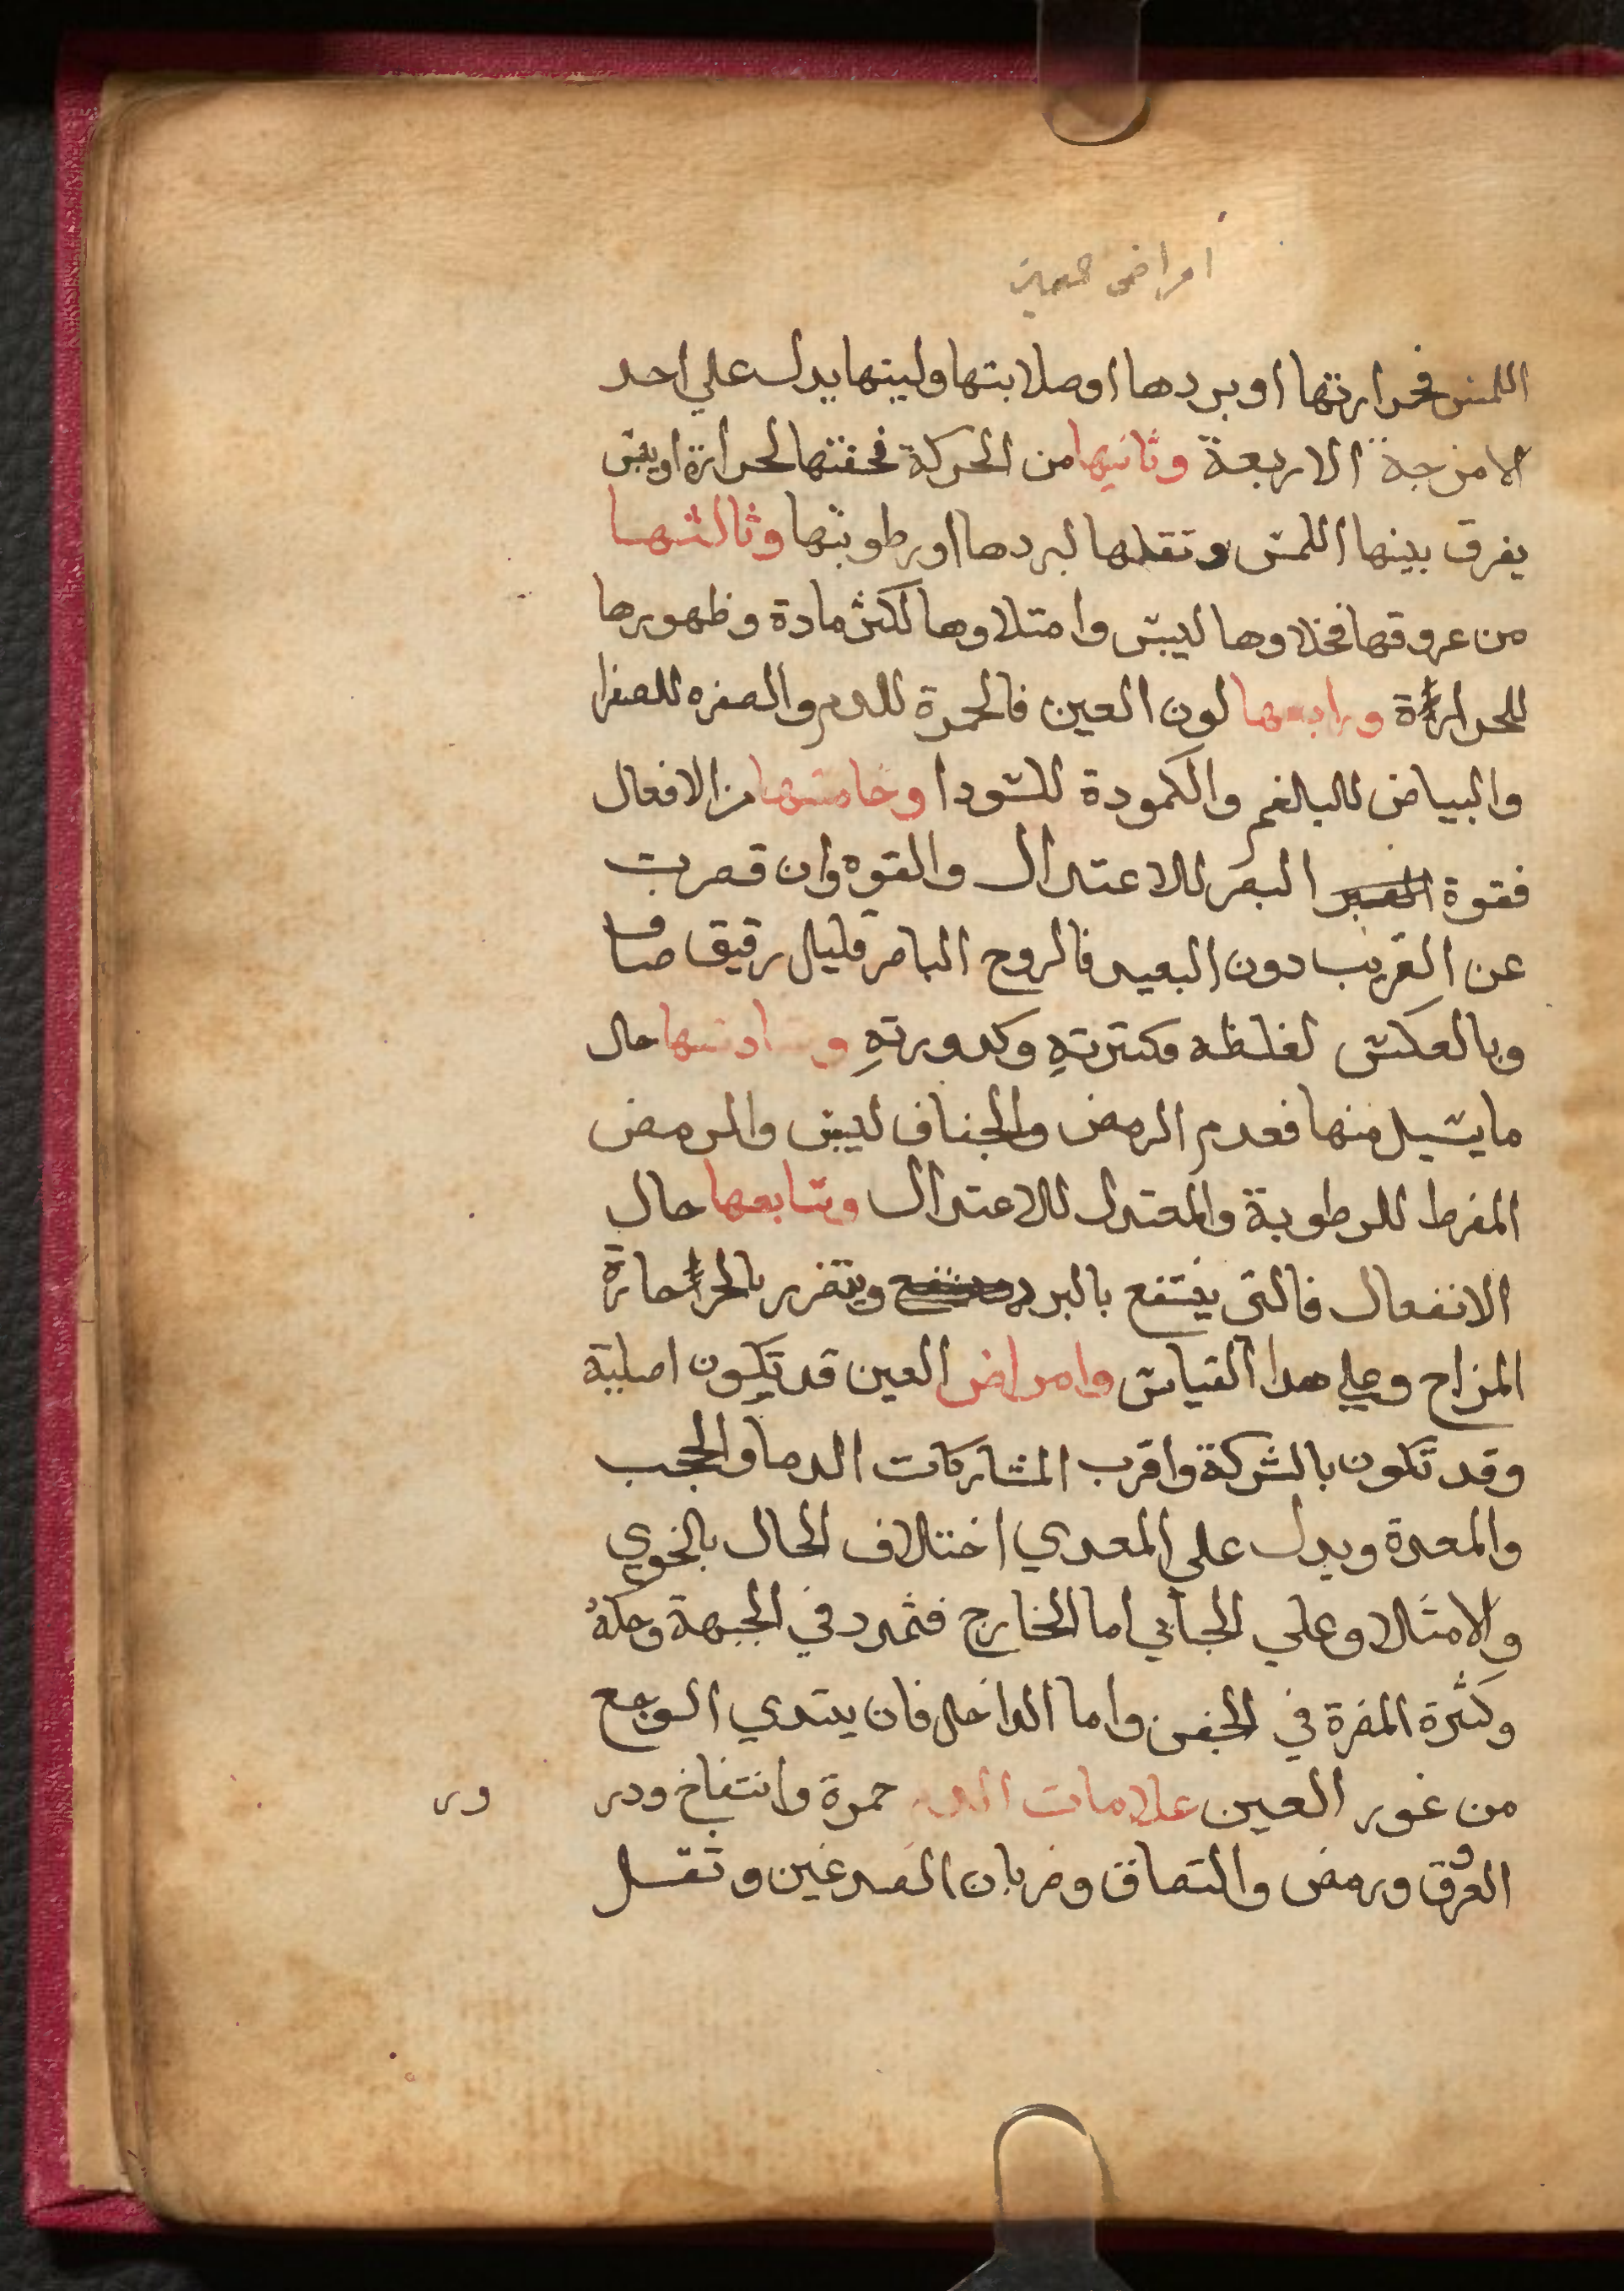 امراض العين
اللمس فحرارتها او بردها او صلابتها ولينها يدل علي احد
الامزجة الاربعة وثانيها من الحركة فخفتها لحرارة او يبس
يفرق بينها اللمس وثقلها لبردها او رطوبتها وثالثها
من عروقها فخلاوها ليبس وامتلاوها لكثر مادة وظهورها
للحرارة ورابعها لون العين فالحمرة للدم والصفره للصفرا
والبياض للبلغم والكمودة للسودا وخامسها من الافعال
فقوة البصر للاعتدال والقوه وان قصرت
عن القريب دون البعيد فالروح الباصر قليل رقيق صاف
وبالعكس لغلظه وكثرته وكدورته وسادسها حال
ما يسيل منها فعدم الرمص والجفاف ليبس والرمص
المفرط للرطوبة والمعتدل للاعتدال وسابعها حال
الانفعال فالتي ينتفع بالبرد ويتضرر بالحر حارة
المزاج وعلي هدا القياس وامراض العين قد تكون اصلية
وقد تكون بالشركة واقرب المشاركات الدماو الحجب
والمعدة ويدل علي المعدي اختلاف الحال بالخوي
والامتلا وعلي الحجابي اما الخارج فتمدد في الجبهة وحكة
وكثرة المضرة في الجفن واما الداخل فان يبتدي الوجع
من غور العين علامات الدم حمرة وانتفاخ ودر
ور
العروق ورمص والتصاق وضربان الصدغين وثقل